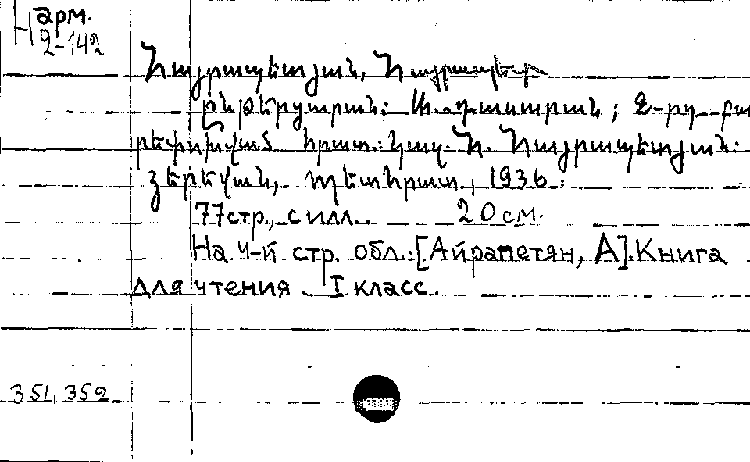 Н арм.
2-142
Հայրապետյան, Հայրապետ
Ընթերցարան: Ա. դասարան; 2-րդ բա
րեփոխված հրատ.: Կազ. Հ. Հայրապետյան:
Յերեվան, Պետհրատ, 1936:
77стр., с илл. 20 см.
На 4-й стр. обл.: [Айрапетян, А]. Книга
для чтения I класс.
351, 352